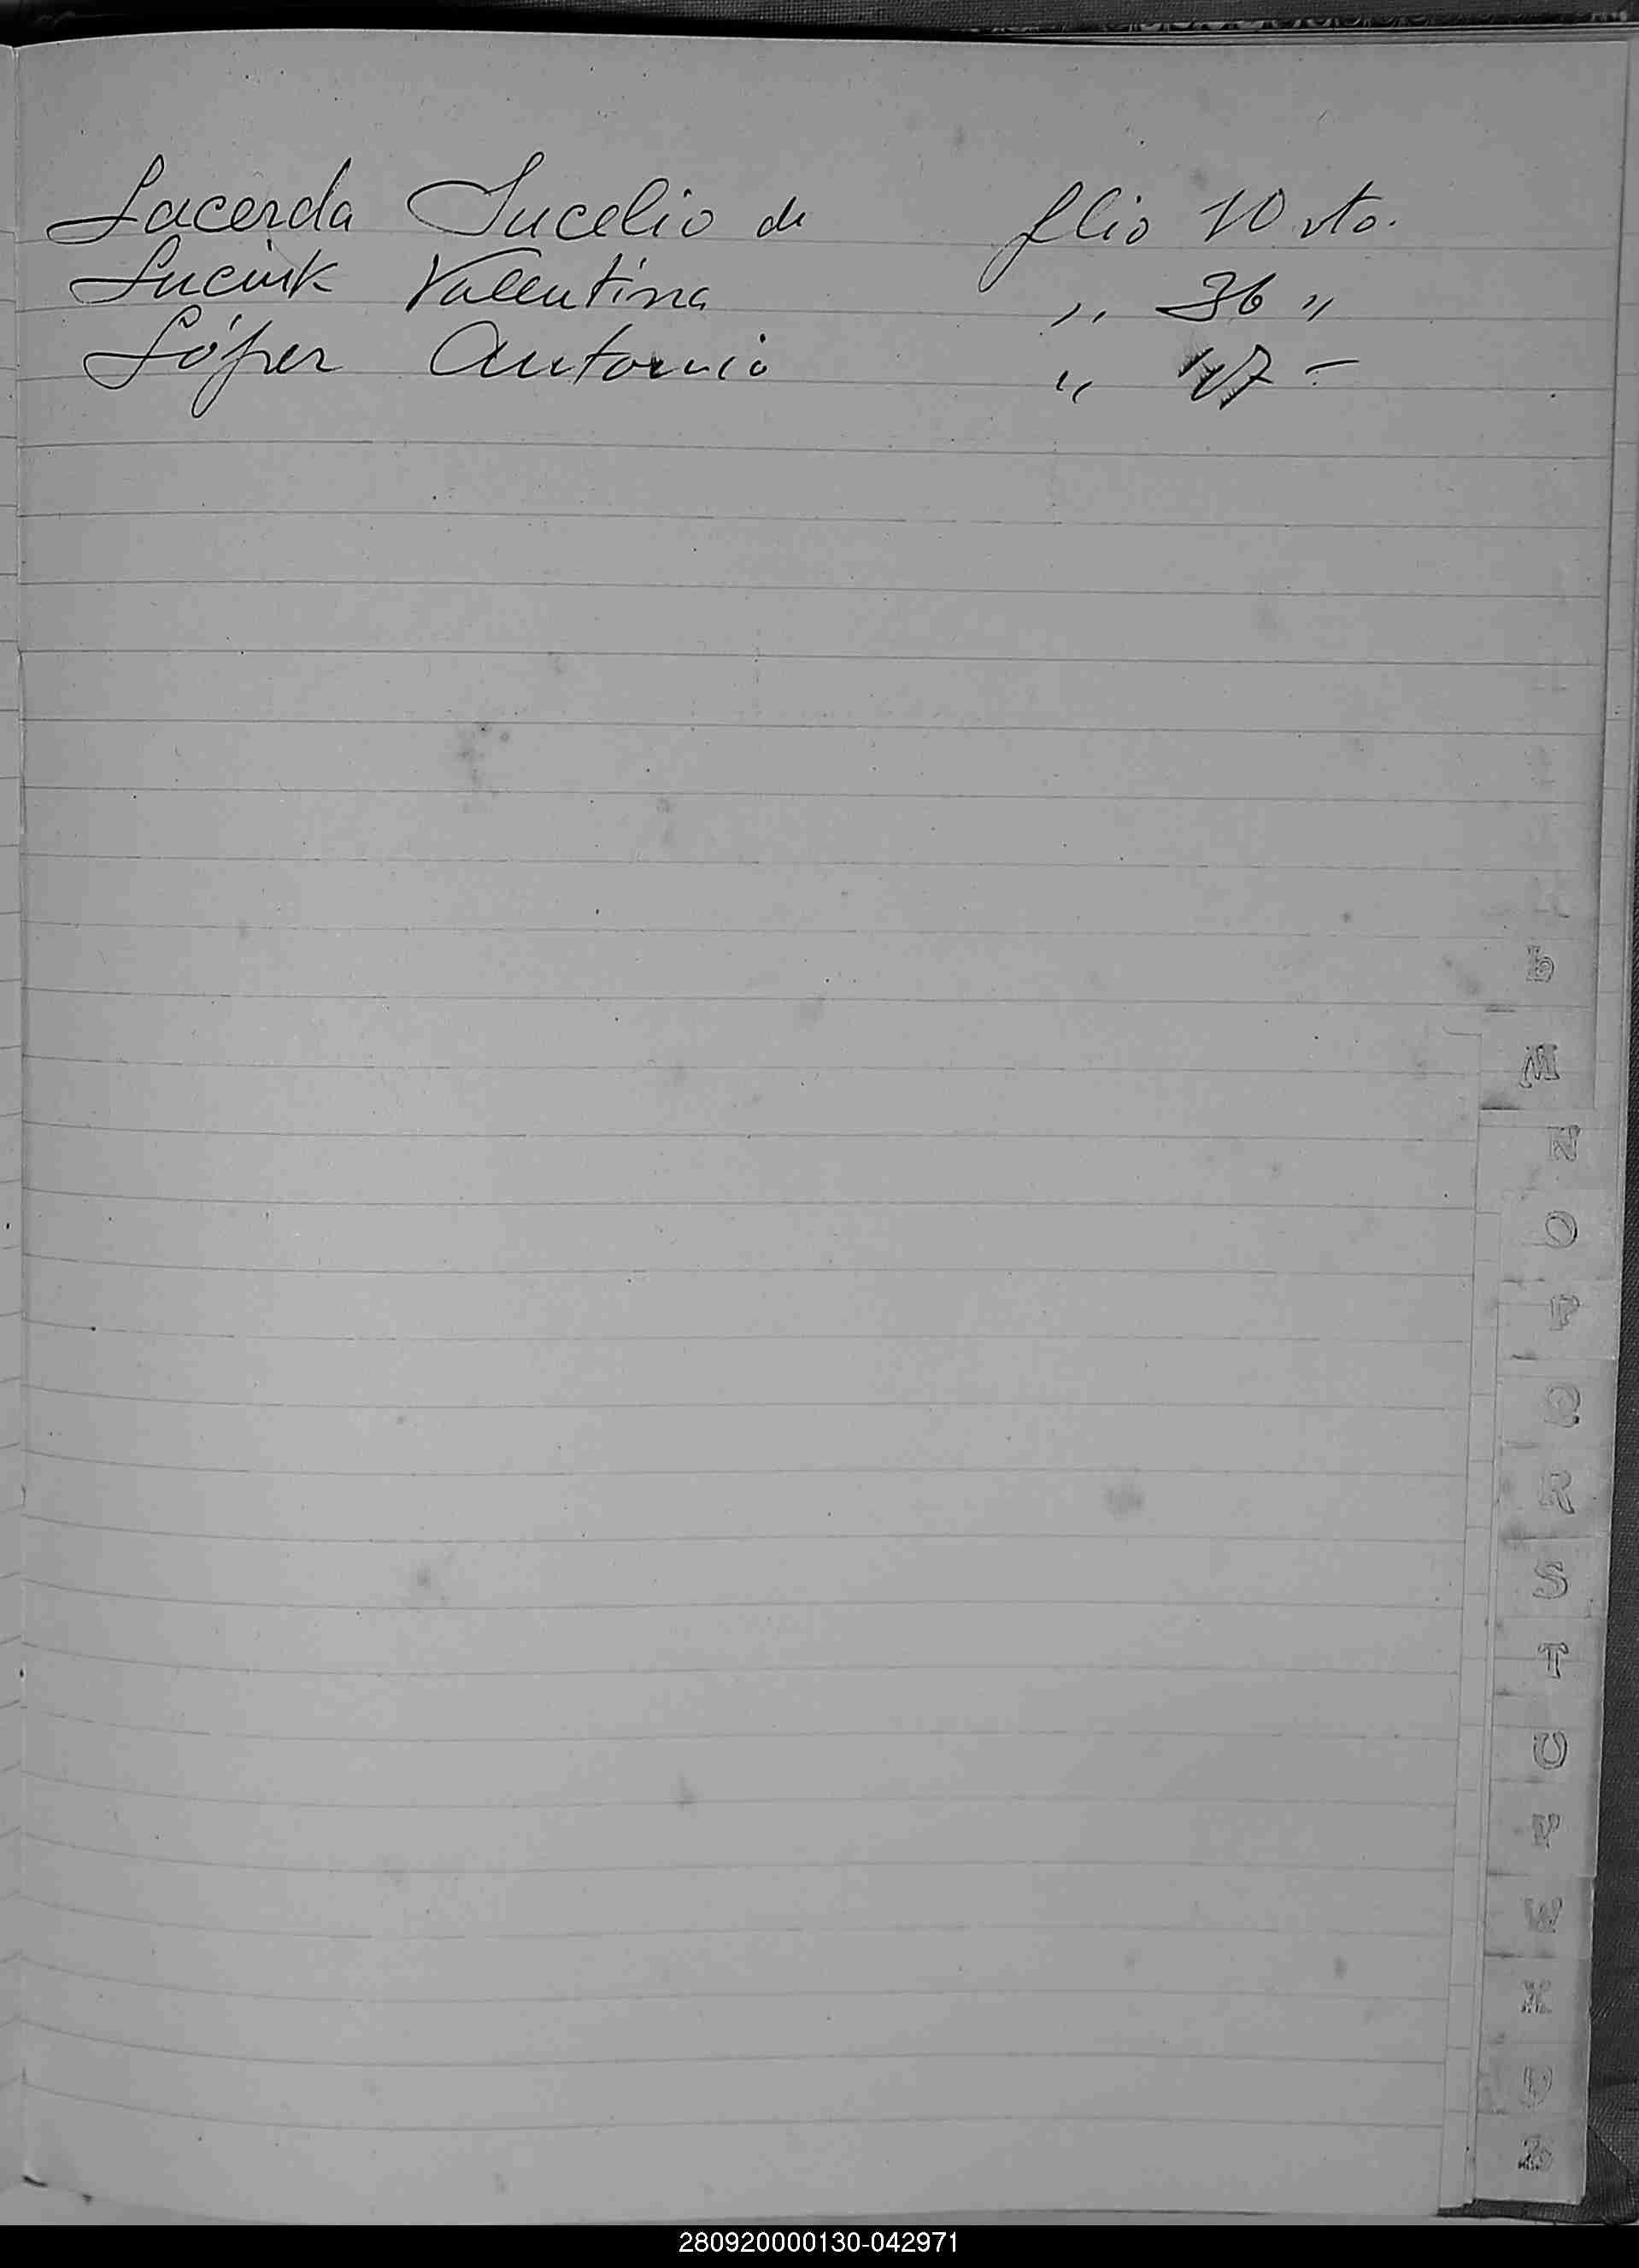 Lacerda Lucelio de flio 10 vto.
Luciuk Valentina " 36 "
López Antonio " 47 -
L
M
N
O
P
Q
R
S
T
U
V
W
X
Y
Z
280920000130-042971